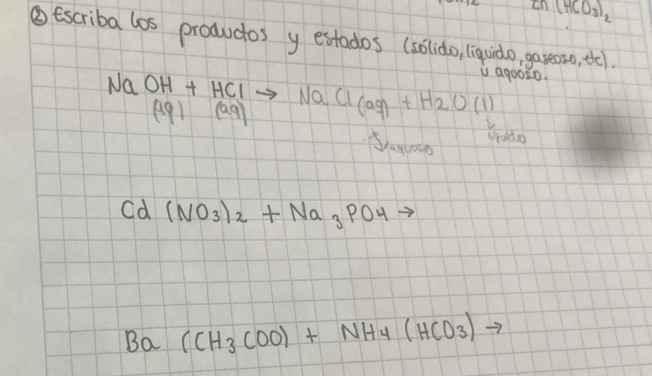 Zn (HCO3)2
② Escriba los productos y estados (sólido, líquido, gaseoso, etc).
u aquoso.
NaOH + HCl → NaCl(aq) + H2O(l)
(aq) (aq)
líquido
Cd (NO3)2 + Na3PO4 →
Ba (CH3COO) + NH4 (HCO3) →